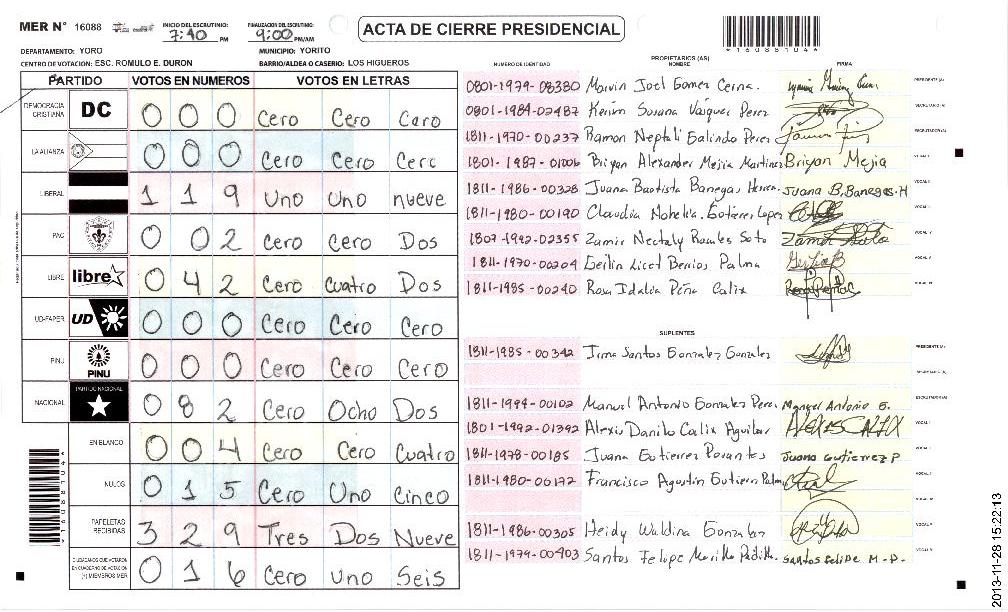 MER N° 16088 INICIO DEL ESCRUTINIO: 7:40 PM FINALIZACION DEL ESCRUTINIO: 9:00 PM/AM ACTA DE CIERRE PRESIDENCIAL
*160881044*
DEPARTAMENTO: YORO MUNICIPIO: YORITO
CENTRO DE VOTACION: ESC. ROMULO E. DURON BARRIO/ALDEA O CASERIO: LOS HIGUEROS
PARTIDO VOTOS EN NUMEROS VOTOS EN LETRAS
DEMOCRACIA CRISTIANA DC 0 0 0 Cero Cero Cero
LA ALIANZA 0 0 0 Cero Cero Cero
LIBERAL 1 1 9 Uno Uno nueve
PAC 0 0 2 Cero Cero Dos
LIBRE libre 0 4 2 Cero Cuatro Dos
UD-FAPER UD 0 0 0 Cero Cero Cero
PINU PINU 0 0 0 Cero Cero Cero
NACIONAL PARTIDO NACIONAL 0 8 2 Cero Ocho Dos
EN BLANCO 0 0 4 Cero Cero Cuatro
NULOS 0 1 5 Cero Uno Cinco
PAPELETAS RECIBIDAS 3 2 9 Tres Dos Nueve
CIUDADANOS QUE VOTARON EN CUADERNO DE VOTACION (+) MIEMBROS MER 0 1 6 Cero Uno Seis
PROPIETARIOS (AS)
NUMERO DE IDENTIDAD NOMBRE FIRMA
0801-1979-08380 Marvin Joel Gomez Cerna. PRESIDENTE (A)
0801-1984-02487 Karim Susana Vasquez Perez SECRETARIO (A)
1811-1970-00237 Ramon Neptali Galindo Perez ESCRUTADOR (A)
1801-1987-01006 Briyan Alexander Mejia Martinez Briyan Mejia
1811-1986-00328 Juana Bautista Banegas Juana B. Banegas. H
1811-1980-00190 Claudia Gutierrez Lopez
1807-1992-02355 Zamir Nectaly Rosales Soto
1811-1970-00204 Licet Berrios Palma
1811-1985-00240 Rosa Idalia Peña Calix
SUPLENTES
1811-1985-00342 Irma Santos Gonzalez Gonzales PRESIDENTE (A)
SECRETARIO (A)
1811-1994-00102 Manuel Antonio Gonzalez Perez Manuel Antonio G. ESCRUTADOR (A)
1801-1992-01392 Alexis Danilo Calix Aguilar ALEXIS CALIX
1811-1978-00185 Juana Gutierrez Juana Gutierrez P
1811-1980-00172 Francisco Agustin Gutierrez Palma
1811-1986-00305 Heidy Waldina Gonzalez
1811-1979-00403 Santos Felipe Murillo Padilla. Santos Felipe M-P.
2013-11-28 15:22:13